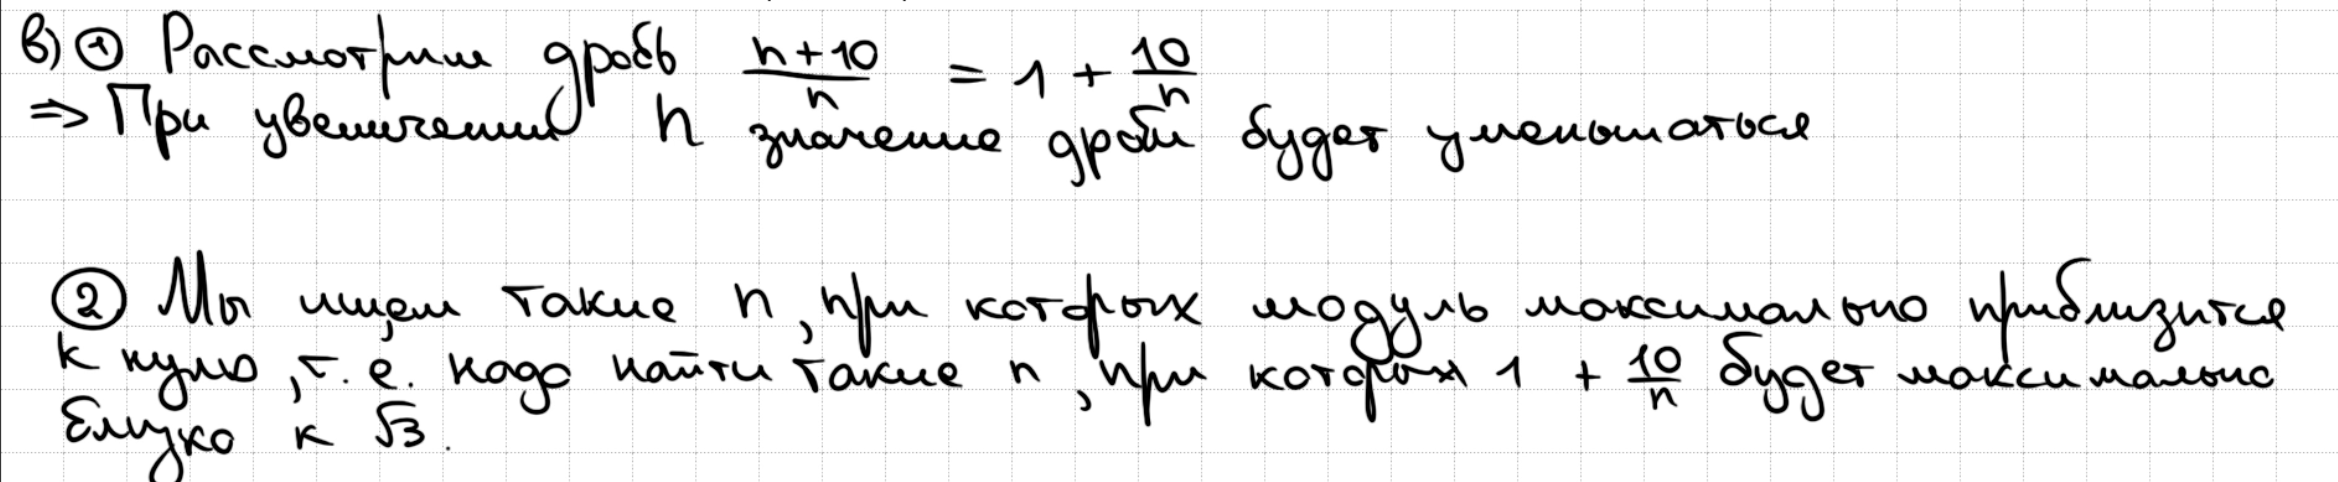 в) ① Рассмотрим дробь \frac{n+10}{n} = 1 + \frac{10}{n}
⇒ При увеличении n значение дроби будет уменьшаться
② Мы ищем такие n, при которых модуль максимально приблизится
к нулю, т.е. надо найти такие n, при которых 1 + \frac{10}{n} будет максимально
близко к √3.